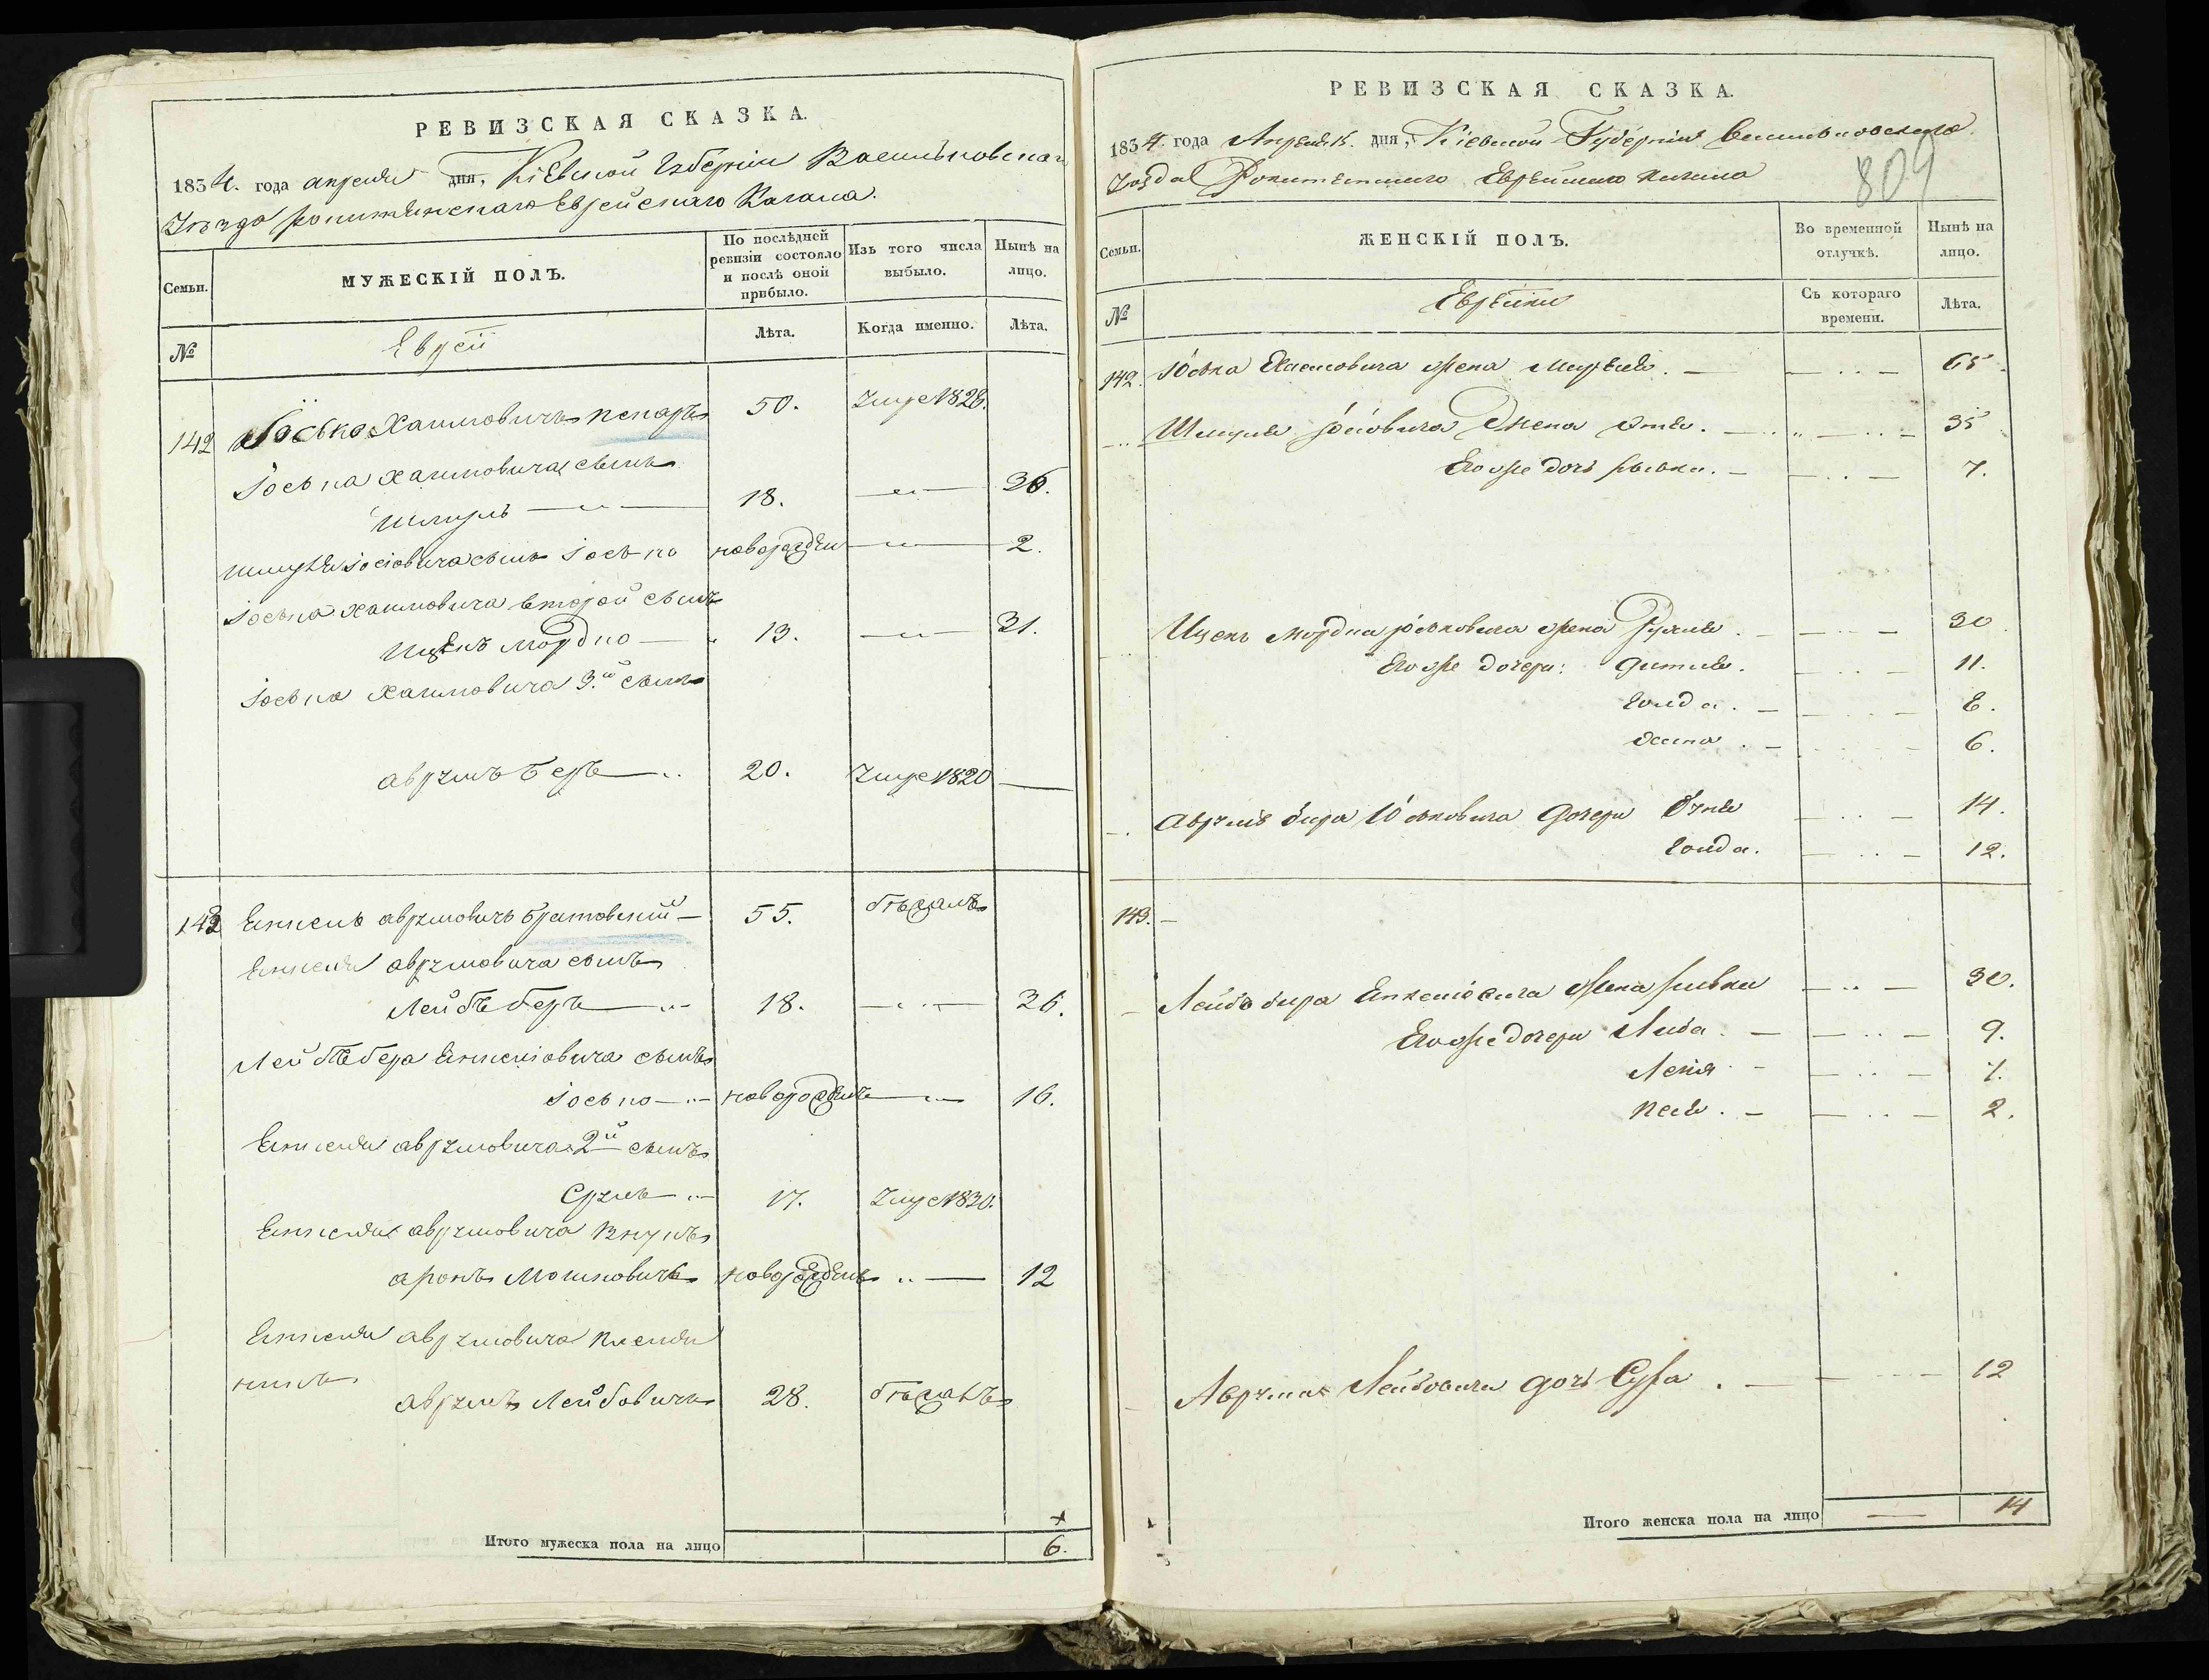 РЕВИЗСКАЯ СКАЗКА.
1834. года апреля дня, Кіевской Губерніи Васильковскаго
Уѣзда Рокитянскаго Еврейскаго Кагала.
Семьи.
МУЖЕСКІЙ ПОЛЪ.
По послѣдней ревизіи состояло и послѣ оной прибыло.
Изъ того числа выбыло.
Нынѣ на лицо.
№
Евреи
Лѣта.
Когда именно.
Лѣта.
142 Іосько Хаимовичъ 50. Умре 1828.
Іоська Хаимовича сынъ
Шмуль 18. 36.
Шмуля Іосіовича сынъ Іосько новорожденъ 2.
Іоська Хаимовича второй сынъ
Ицекъ Мордко 13. 31.
Іоська Хаимовича 3.й сынъ
Аврумъ Беръ 20. Умре 1820
143 Енкель Аврумовичъ Братовскій 55. бѣжалъ
Енкеля Аврумовича сынъ
Лейбъ беръ 18. 36.
Лейбъ бера Енкеліовича сынъ
Іосько новорожденъ 16.
Енкеля Аврумовича 2й сынъ
Срулъ 17. Умре 1830.
Енкеля Аврумовича внукъ
Аронъ Мошковичъ новорожденъ 12
Енкеля Аврумовича племян
никъ
Аврумъ Лейбовичъ 28. бѣжалъ
Итого мужеска пола на лицо 6.
РЕВИЗСКАЯ СКАЗКА.
1834. года Апреля дня, Кіевской Губерніи Васильковскаго
Уѣзда Рокитянскаго Еврейскаго Кагала
809
Семьи.
ЖЕНСКІЙ ПОЛЪ.
Во временной отлучкѣ.
Нынѣ на лицо.
№
Еврейки
Съ котораго времени.
Лѣта.
142. Юська Хаимовича жена 65.
Шмуля Іосіовича жена Этля. 35
Его же дочь Рывка. 7.
Ицекъ Мордка Юськовича жена Рухля. 30
Его же дочери: Гитля. 11.
Голда. 8.
6.
Аврумъ бера Юськовича дочери 14.
Голда. 12.
143.
Лейбъ бера Енкеліовича жена Рывка 30.
Его же дочери Люба. 9.
2.
Аврума Лейбовича дочь Сура. 12
Итого женска пола на лицо 14